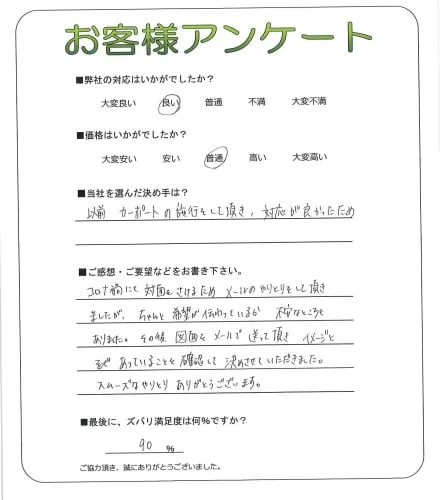 お客様アンケート
■弊社の対応はいかがでしたか？
大変良い 良い 普通 不満 大変不満
■価格はいかがでしたか？
大変安い 安い 普通 高い 大変高い
■当社を選んだ決め手は？
以前 カーポートの施行をして頂き、対応が良かったため
■ご感想・ご要望などをお書き下さい。
コロナ禍にて 対面をさけるため メールのやりとりをして頂き
ましたが、ちゃんと希望が伝わっているか 不安なところも
ありました。その後 図面をメールで 送って頂き イメージと
あっていることを確認して 決めさせていただきました。
スムーズなやりとり ありがとうございます。
■最後に、ズバリ満足度は何%ですか？
90 %
ご協力頂き、誠にありがとうございました。